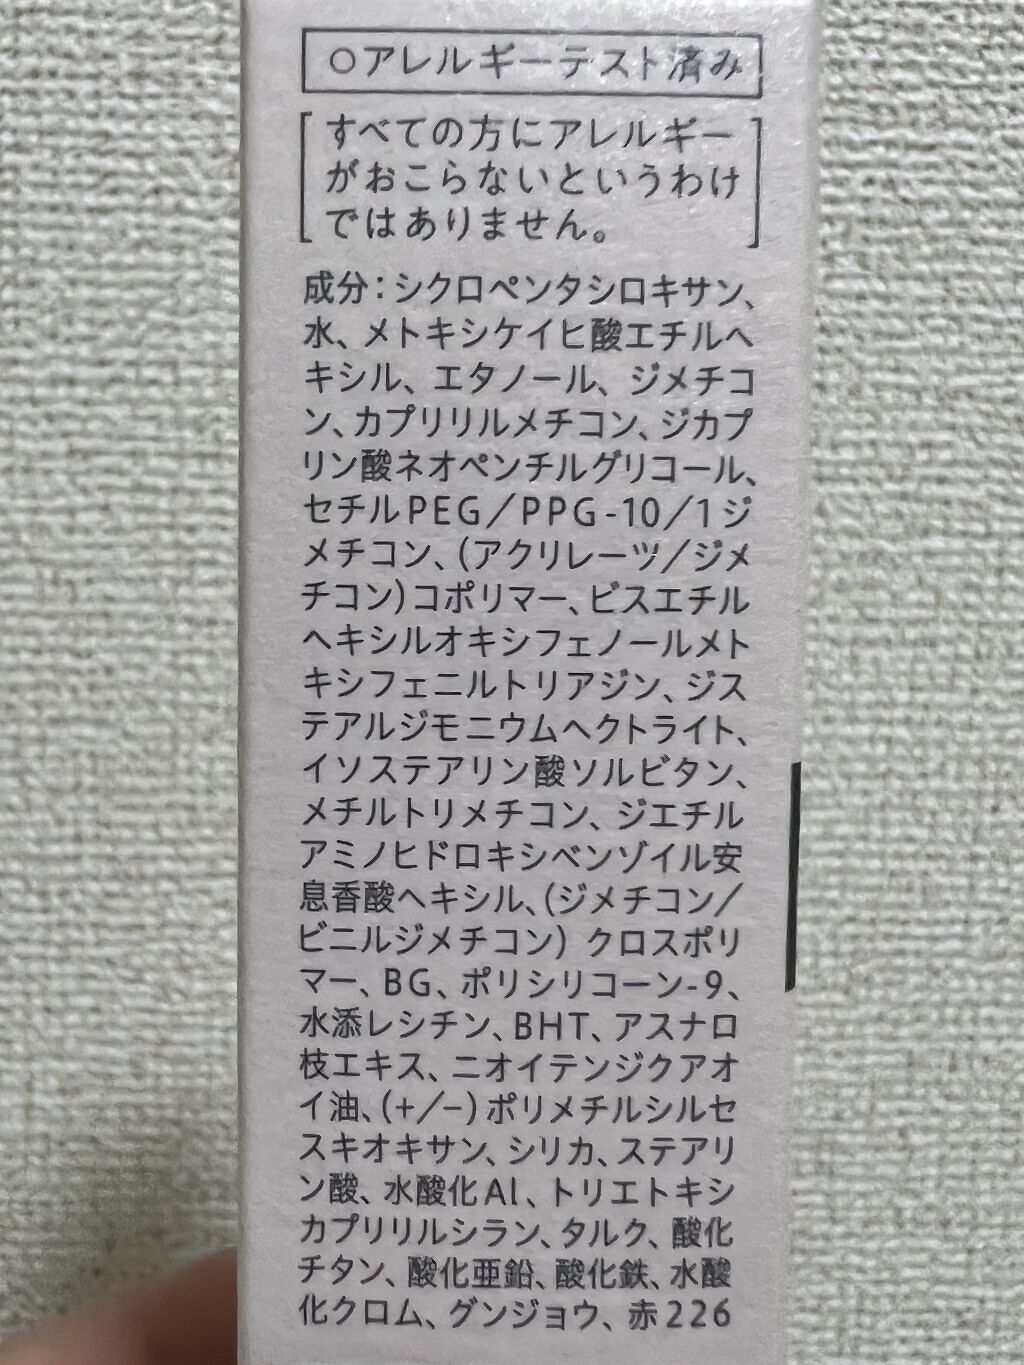 ○アレルギーテスト済み
すべての方にアレルギー
がおこらないというわけ
ではありません。
成分：シクロペンタシロキサン、
水、メトキシケイヒ酸エチルヘ
キシル、エタノール、ジメチコ
ン、カプリリルメチコン、ジカプ
リン酸ネオペンチルグリコール、
セチルPEG/PPG-10/1ジ
メチコン、(アクリレーツ/ジメ
チコン)コポリマー、ビスエチル
ヘキシルオキシフェノールメト
キシフェニルトリアジン、ジス
テアルジモニウムヘクトライト、
イソステアリン酸ソルビタン、
メチルトリメチコン、ジエチル
アミノヒドロキシベンゾイル安
息香酸ヘキシル、(ジメチコン/
ビニルジメチコン)クロスポリ
マー、BG、ポリシリコーン-9、
水添レシチン、BHT、アスナロ
枝エキス、ニオイテンジクアオ
イ油、(+/−)ポリメチルシルセ
スキオキサン、シリカ、ステアリ
ン酸、水酸化Al、トリエトキシ
カプリリルシラン、タルク、酸化
チタン、酸化亜鉛、酸化鉄、水酸
化クロム、グンジョウ、赤226